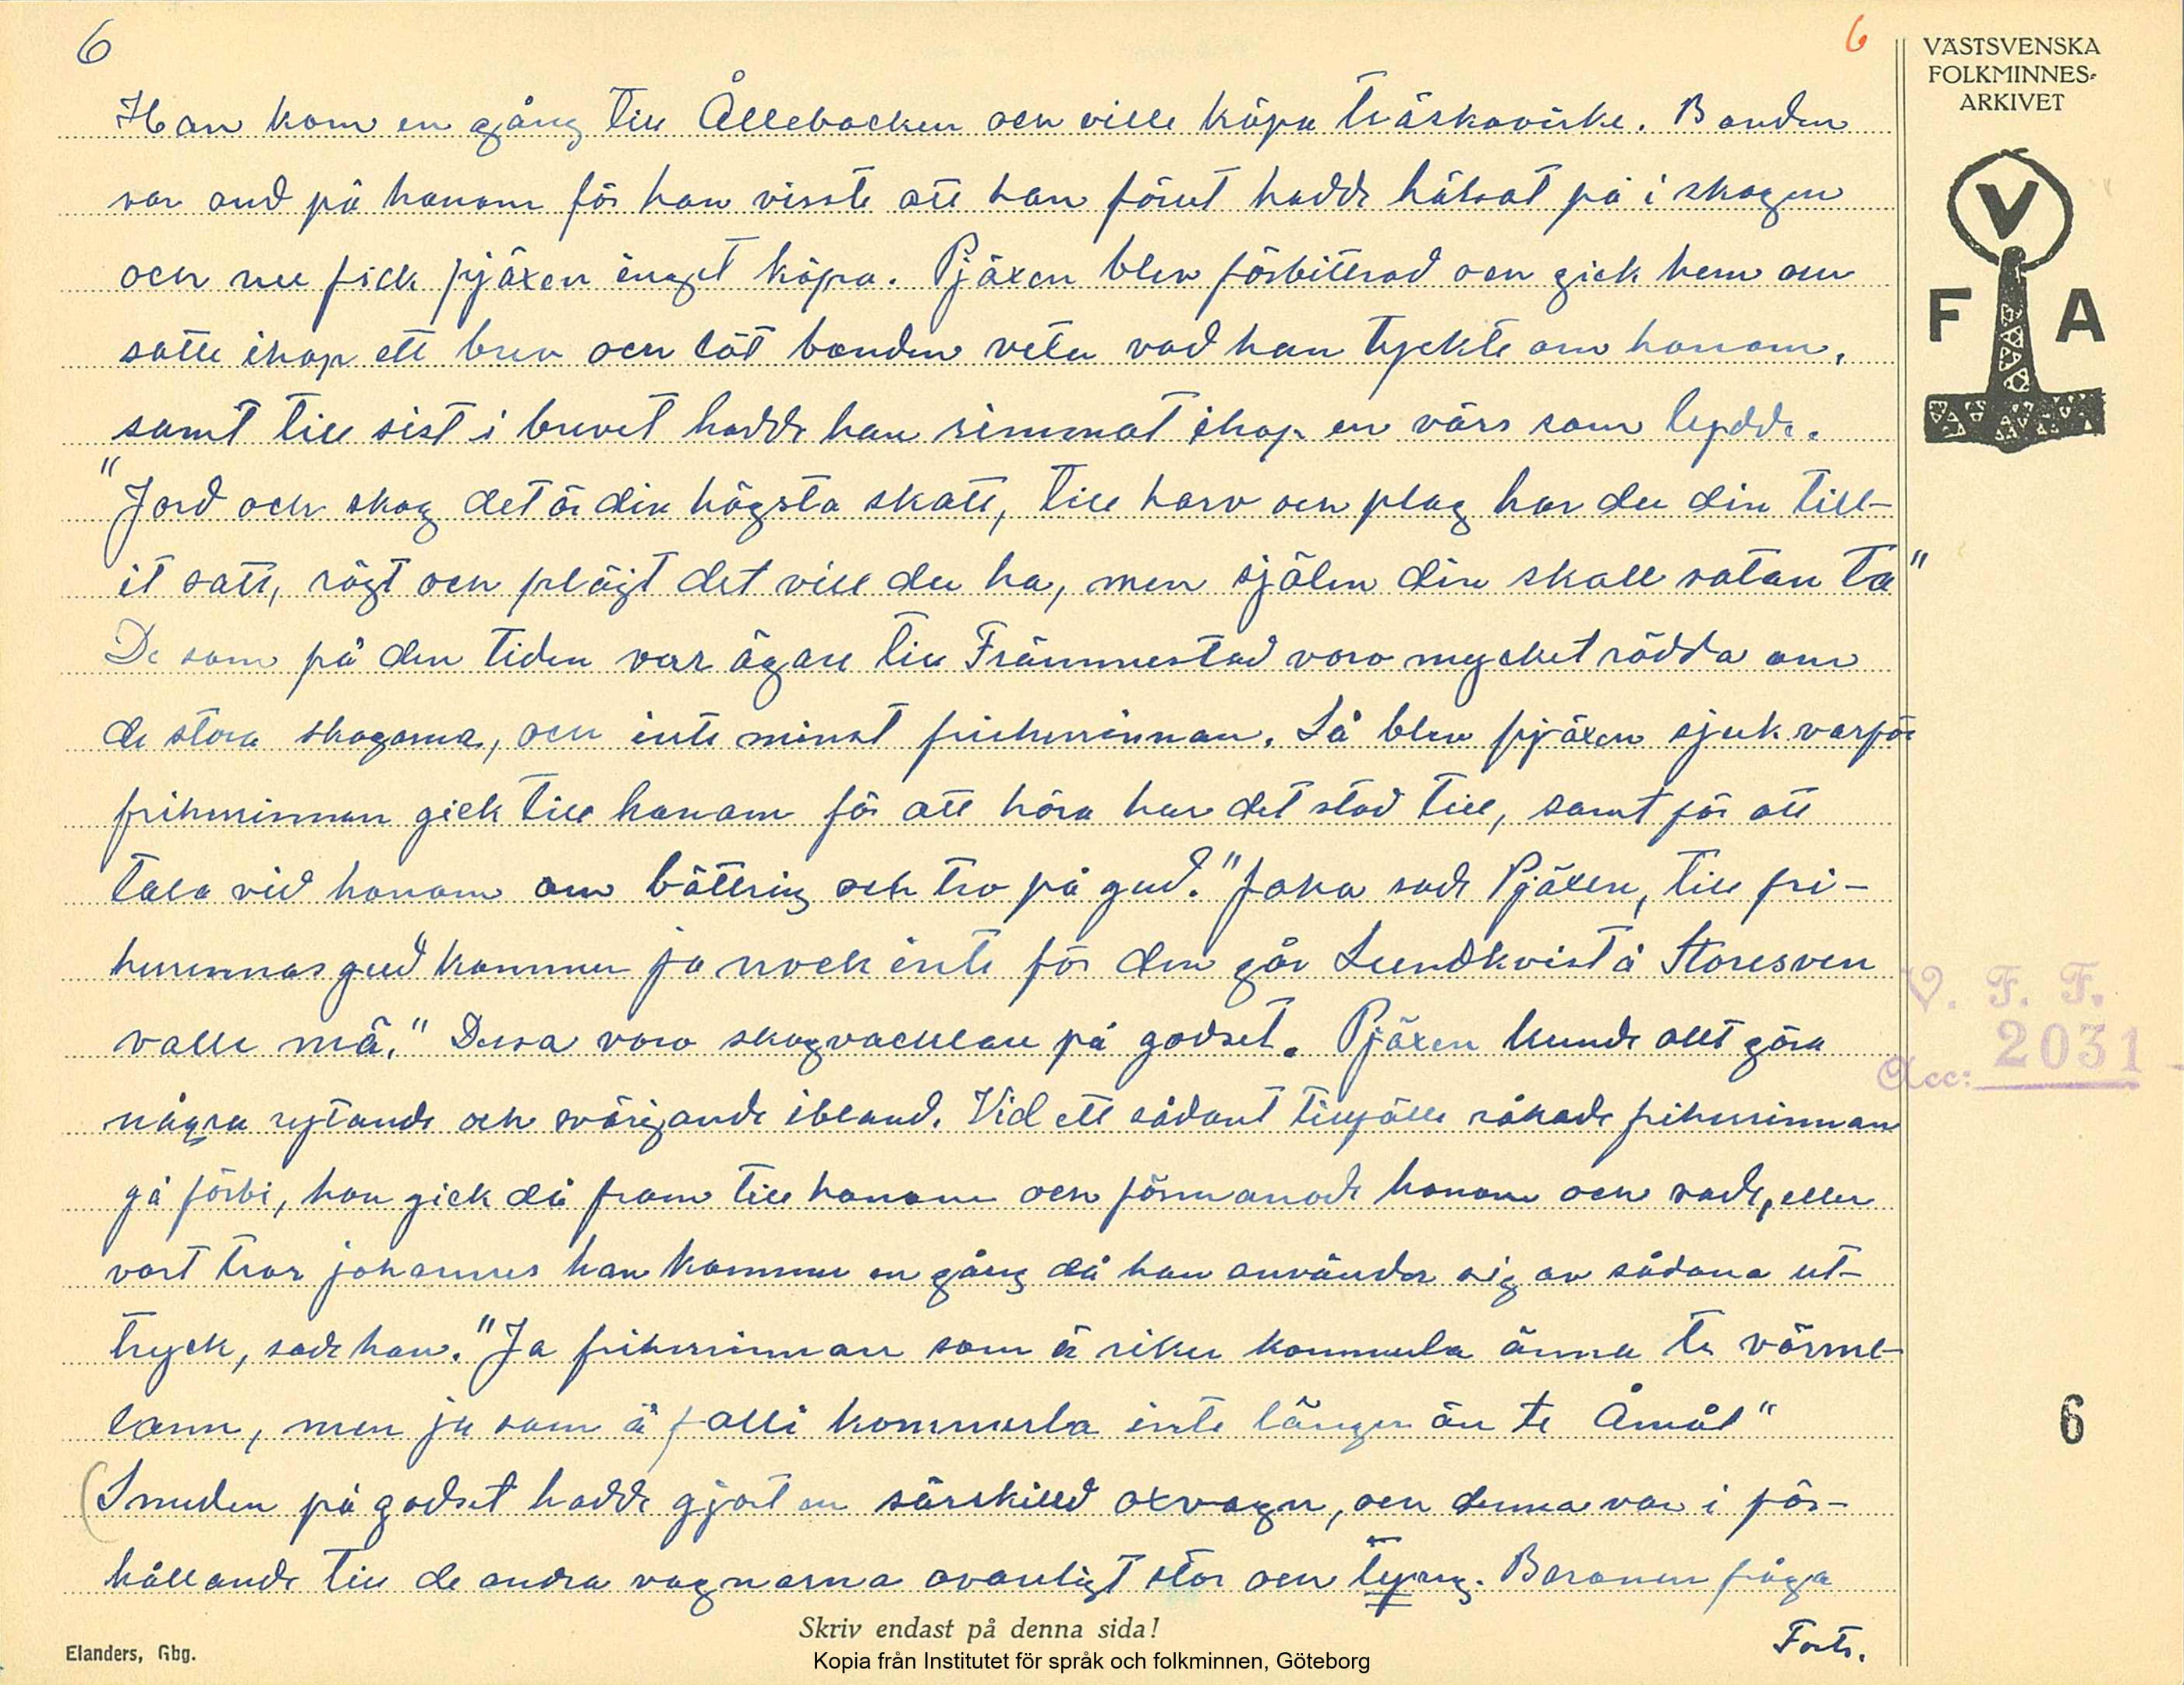 6
6
VÄSTSVENSKA
FOLKMINNES-
ARKIVET
V
F A
Han kom en gång till Ållebacken och ville köpa träskovirke. Bonden
var ond på honom för han visste att han förut hadde hälsat på i skogen
och nu fick pjäxen inget köpa. Pjäxen blev förbittrad och gick hem och
satte ihop ett brev och lät bonden veta vad han tyckte om honom,
samt till sist i brevet hadde han rimmat ihop en värs som lydde.
"Jord och skog det är din högsta skatt, till harv och plog har du din till-
it satt, rögt och plöjt det vill du ha, men själen din skall satan ta"
De som på den tiden var ägare till Främmestad voro mycket rädda om
de stora skogarna, och inte minst friherrinnan. Så blev pjäxen sjuk varför
friherrinnan gick till honom för att höra hur det stod till, samt för att
tala vid honom om bättring och tro på gud. "Jaha sade Pjäxen, till fri-
herrinnas gud kommer ja nock inte för den går Lundkvist å Storesven
valle mä." Dessa voro skogvacktare på godset. Pjäxen kunde allt göra
några rytande och svärjande ibland. Vid ett sådant tillfälle råkade friherrinnan
gå förbi, hon gick då fram till honom och förmanade honom och sade, eller
vart tror johannes han kommer en gång då han använder sig av sådana ut-
tryck, sade hon. "Ja friherrinnan som ä riker kommerla änna te värme-
lann, men ja som ä falli kommerla inte länger än te Åmål"
(Smeden på godset hadde gjort en särskilld oxvagn, och denna var i för-
hållande till de andra vagnarna ovanligt stor och tung. Baronen fråga
Forts.
V. F. F.
Acc: 2031
6
Skriv endast på denna sida!
Elanders, Gbg.
Kopia från Institutet för språk och folkminnen, Göteborg